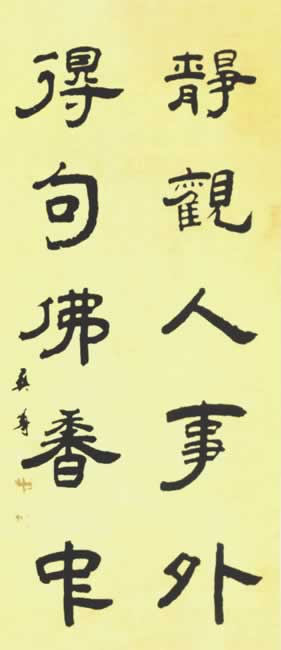 靜觀人事外
得句佛香中